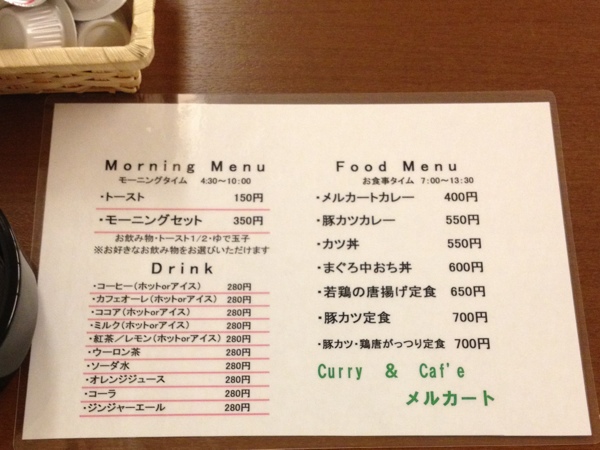 Morning Menu
モーニングタイム 4:30～10:00
・トースト 150円
・モーニングセット 350円
お飲み物・トースト1/2・ゆで玉子
※お好きなお飲み物をお選びいただけます
Drink
・コーヒー(ホットorアイス) 280円
・カフェオーレ(ホットorアイス) 280円
・ココア(ホットorアイス) 280円
・ミルク(ホットorアイス) 280円
・紅茶／レモン(ホットorアイス) 280円
・ウーロン茶 280円
・ソーダ水 280円
・オレンジジュース 280円
・コーラ 280円
・ジンジャーエール 280円
Food Menu
お食事タイム 7:00～13:30
・メルカートカレー 400円
・豚カツカレー 550円
・カツ丼 550円
・まぐろ中おち丼 600円
・若鶏の唐揚げ定食 650円
・豚カツ定食 700円
・豚カツ・鶏唐がっつり定食 700円
Curry & Caf'e
メルカート